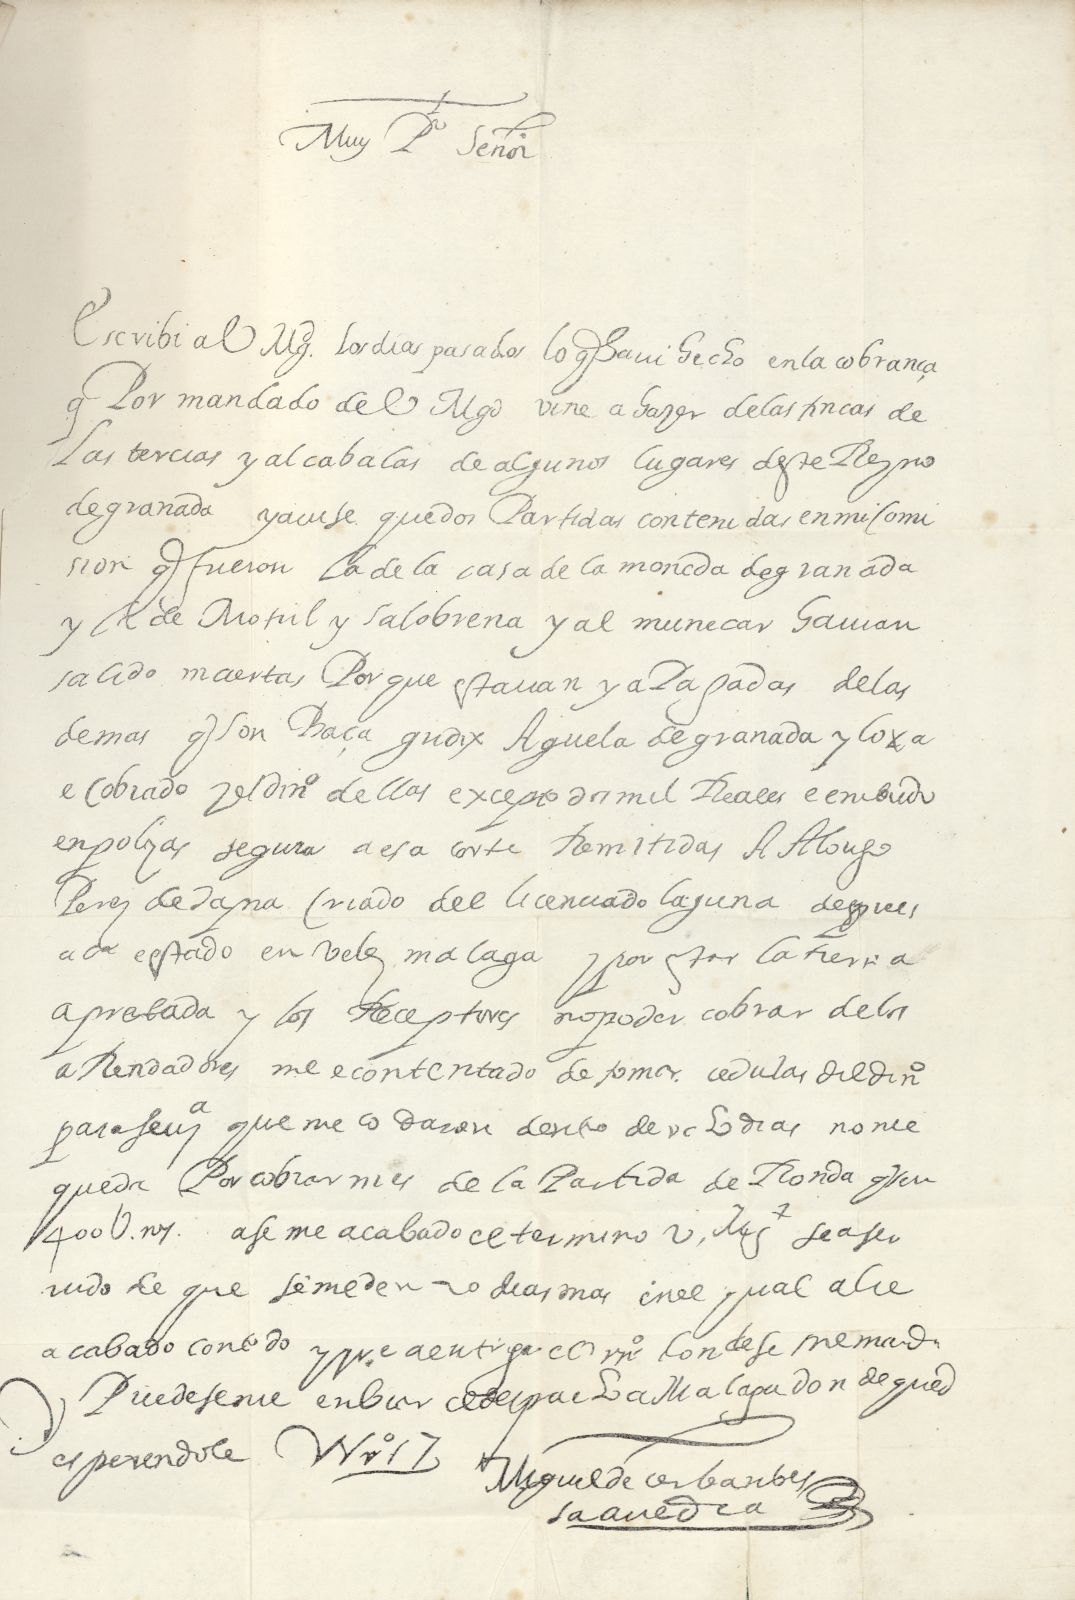 Muy Pº Señor
Escribi al Mgd. los dias pasados lo q haui hecho en la cobrança
q Por mandado de V Mgd vine a hazer delas fincas de
las tercias y alcabalas de algunos lugares deste Reyno
de granada y auise que dos Partidas contenidas en mi comi
sion q fueron la de la casa de la moneda de granada
y la de Motril y salobrena y al munecar hauian
salido muertas Porque estauan ya Pagadas delas
demas q son Baça guadix Aguela de granada y loxa
e cobrado y el dinº dellas excepto dos mil Reales e embiado
en polizas segura a esa corte Remitidas A Alonso
Perez de tapia Criado del licenciado laguna despues
aca e estado en velez malaga y por estar la tierra
apretada y los Receptores no poder cobrar delos
aRendadores me e contentado de tomar cedulas del dinº
para seuª que me lo daran dentro de 8 dias no me
queda Por cobrar mas de la Partida de Ronda q son
400U. ms. ase me acabado el termino V. Mgd sea ser
uido de que se me den 20 dias mas en el qual abre
acabado con todo y pre el dinº donde se me manda
Puedeseme enbiar el despacho a Malaga don de qued
esperandole Nrº 17
Miguel de cerbantes
saauedra